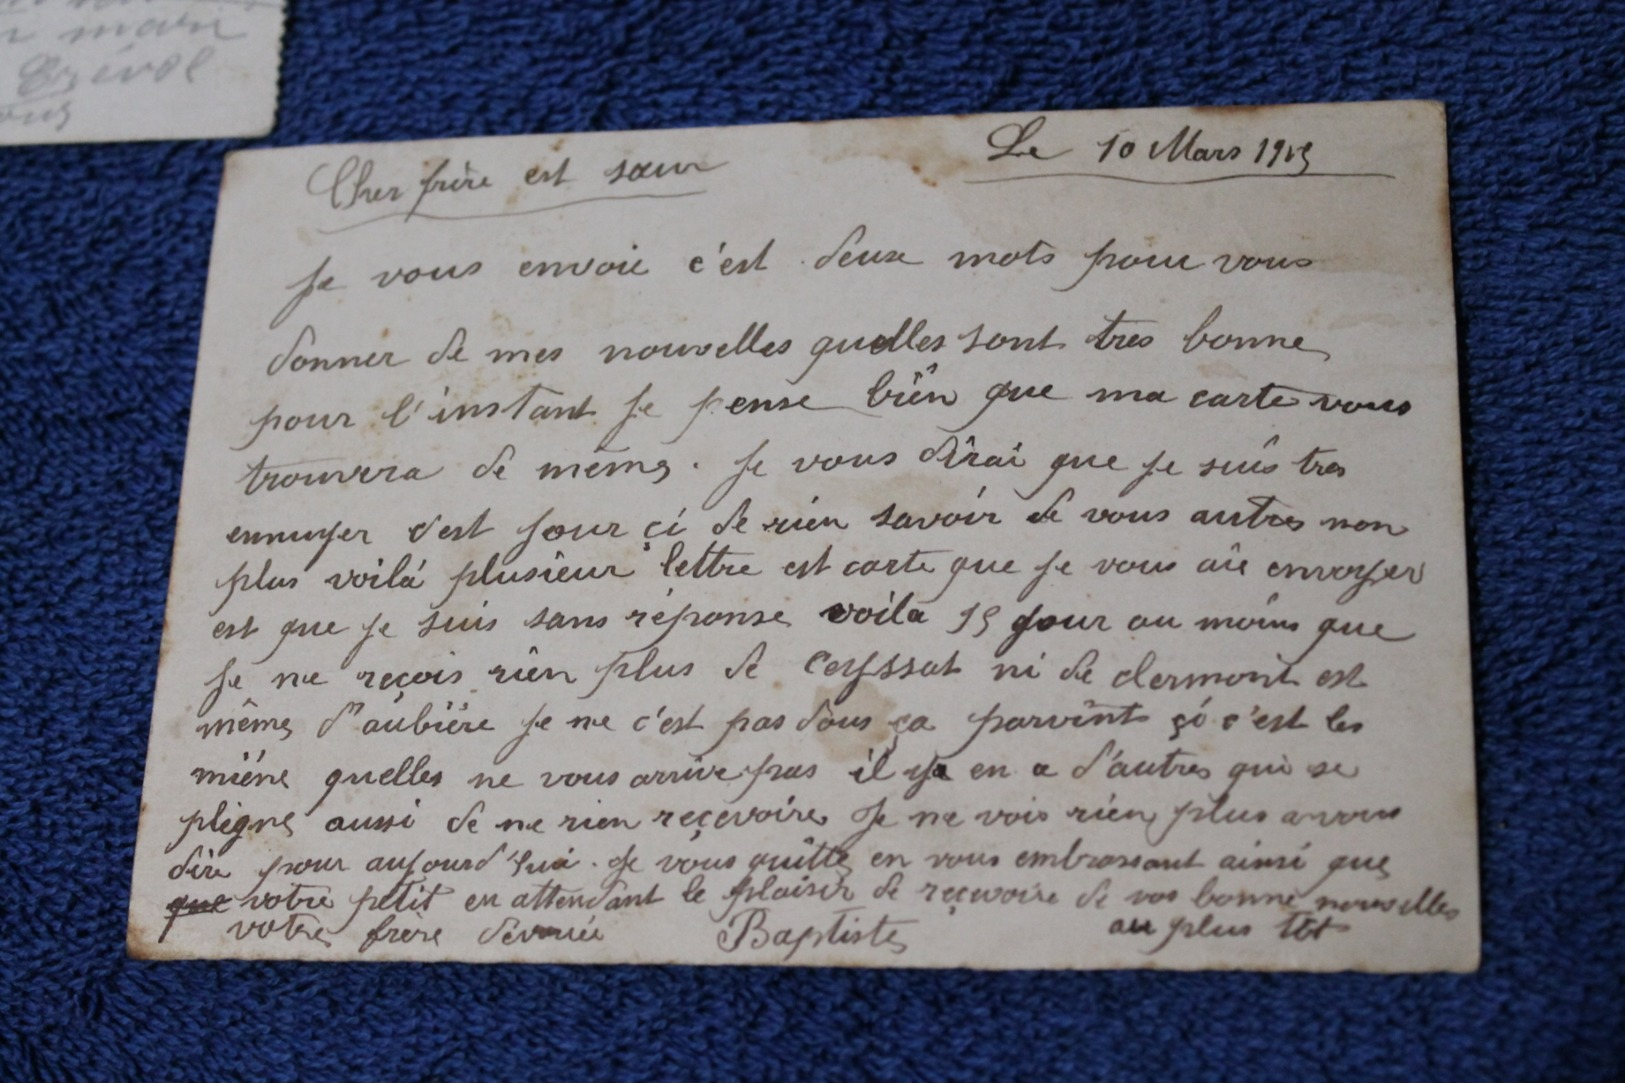 n mari
Le 10 Mars 1915
Cher frère est sœur
Je vous envoie c'est deux mots pour vous
donner de mes nouvelles quelles sont tres bonne
pour l'instant je pense bien que ma carte vous
trouvera de même. Je vous dirai que je suis tres
ennuyer c'est jour çi de rien savoir de vous autres non
plus voilá plusieur lettre est carte que je vous aie envoyer
est que je suis sans réponse voila 15 jour au moins que
je ne reçois rien plus de Ceyssat ni de clermont est
même d'aubière je ne c'est pas d'ous ça parvint çi c'est les
miéne quelles ne vous arrive pas il ya en a d'autres qui se
pleigne aussi de ne rien reçevoire Je ne vois rien plus a vous
dire pour aujourd'hui. Je vous quitte en vous embrassant ainsi que
que votre petit en attendant le plaisir de reçevoire de vos bonne nouvelles
votre frère dévouée Baptiste au plus tôt